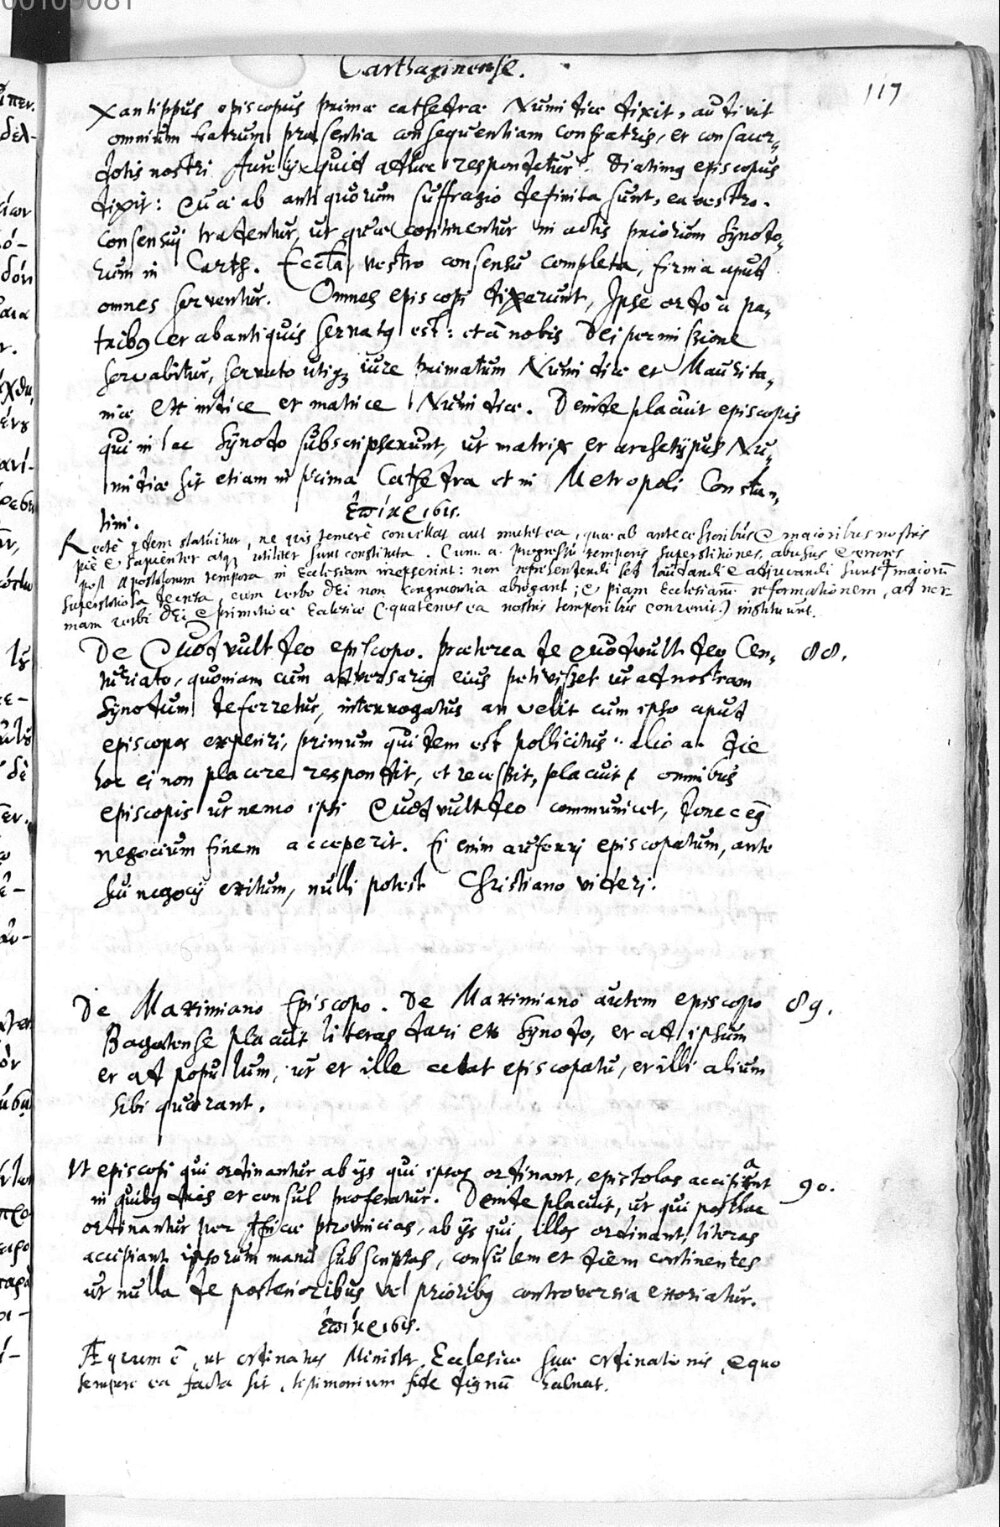 00109081
Carthaginense.
117
Xantippus episcopus primæ cathedræ Numidiæ dixit, audivit
omnium fratrum præsentia consequentiam confratris, et consacer-
dotis nostri Aurelij: quid adhuc respondetur? Diatimg episcopus
dixit: Quæ ab antiquorum suffragio definita sunt, ea vestro
consensu tradentur, ut quæ continentur in actis priorum Synodo-
rum in Carth. Eccľa vestro consensu completa, firma apud
omnes serventur. Omnes episcopi dixerunt, Ipse ordo à pa-
tribg et ab antiquis servatg est: et à nobis Dei permissione
servabitur, servato utiqз iure primatum Numidiæ et Maurita-
niæ ex indice et matrice Numidiæ. Deinde placuit episcopis
qui in hac Synodo subscripserunt, ut matrix et archetypus Nu-
midiæ sit etiam in prima Cathedra et in Metropoli Constan-
tini.
ἐπίκρισις.
Recte qdem statuitur, ne quis temerè convellat aut mutet ea, quæ ab antecessoribus & maioribus nostris
piè & sapienter atqз utiliter sunt constituta. Cum a. progressu temporis superstitiones, abusus & errores
post Apostolorum tempora in Ecclesiam irrepserint: non reprehendendi sed laudandi & adjuvandi sunt maiorum
superstitiosa decreta, cum verbo Dei non congruentia abrogant, & piam Ecclesiarum reformationem, ad nor-
mam verbi Dei & primitivæ Ecclesiæ (quatenus ea nostris temporibus convenit) instituunt.
De Quodvultdeo episcopo. Præterea de Quodvultdeo Cen- 88.
turiato, quoniam cum adversarig eius petivisset ut ad nostram
Synodum deferretur, interrogatus an velit cum ipso apud
episcopos experiri, primum quidem est pollicitus: alio a. die
hoc ei non placere respondit, et recessit, placuit omnibus
episcopis ut nemo ipsi Quodvultdeo communicet, donec eg
negocium finem acceperit. Ei enim auferri episcopatum, ante
hu negocij exitum, nulli potest Christiano videri.
De Maximiano Episcopo. De Maximiano autem episcopo 89.
Bagatense placuit literas dari ex Synodo, et ad ipsum
et ad populum, ut et ille cedat episcopatu, et illi alium
sibi quærant.
Ut episcopi qui ordinantur ab ijs qui ipsos ordinant, epistolas accipiant 90.
in quibg dies et consul proferatur. Deinde placuit, ut qui posthac
ordinantur per Africæ provincias, ab ijs qui illos ordinant, literas
accipiant ipsorum manu subscriptas, consulem et diem continentes
ut nulla de posterioribus vel prioribg controversia exoriatur.
ἐπίκρισις.
Æquum ē, ut ordinatus Minister Ecclesiæ suæ ordinationis, & quo
tempore ea facta sit, testimonium fide dignū habeat.